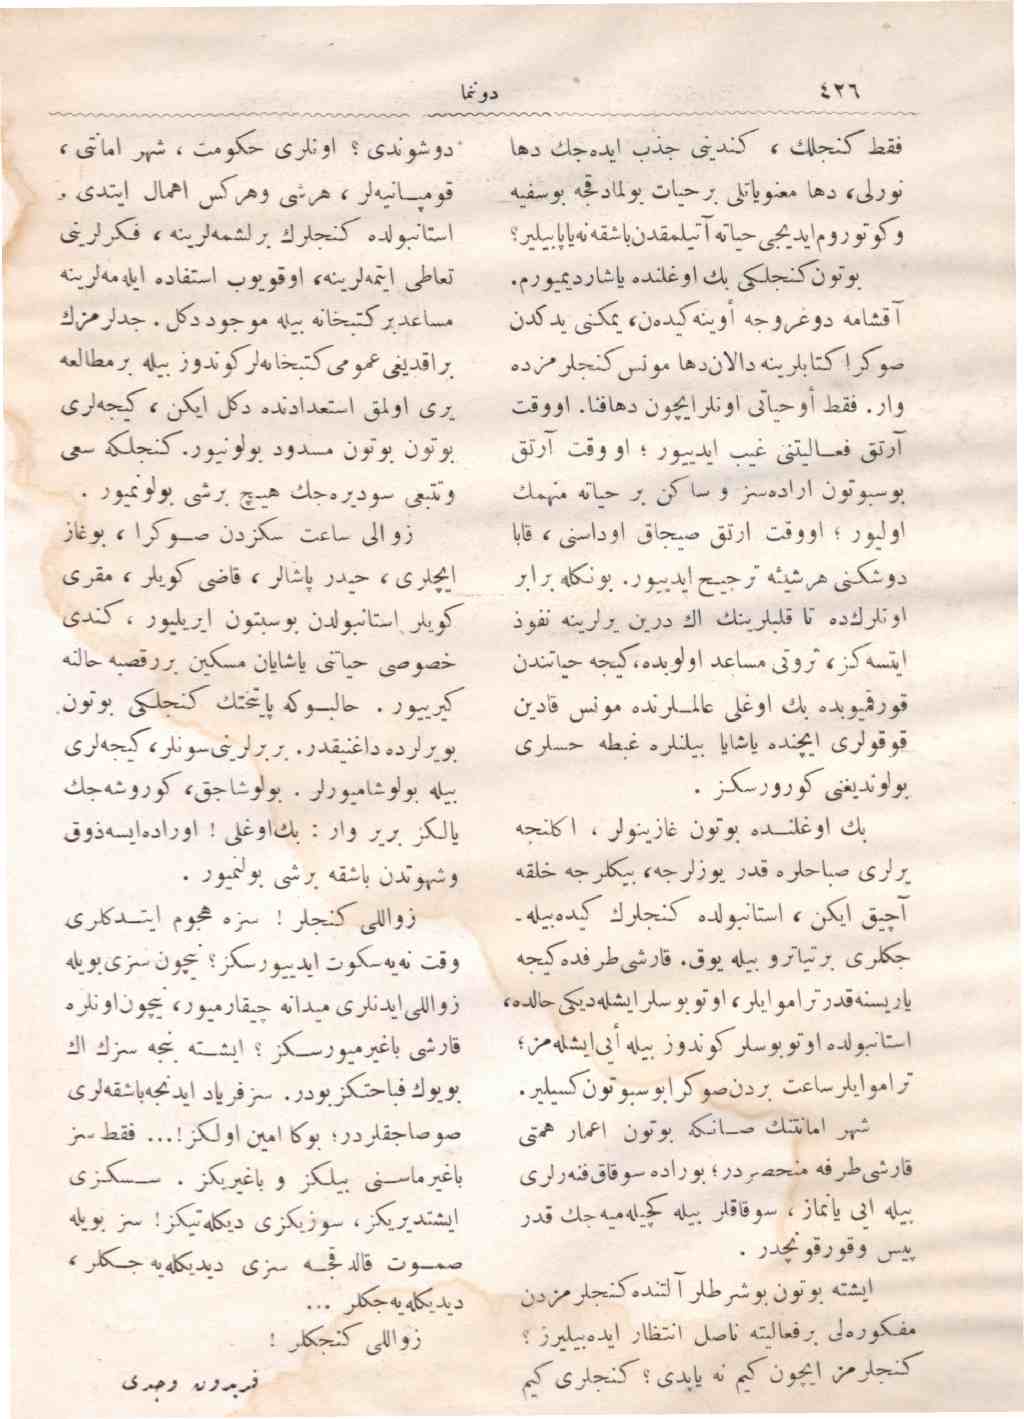 ٤٢٦
دوننما
فقط كنجلك ، كندينى جذب ايده‌جك دها
نورلى، دها معنوياتلى برحيات بولمادقجه بوسفيه
وكوتوروم ايديجى حياته آتيلمقدن باشقه نه ياپابيلير؟
بوتون كنجلكى بك اوغلنده ياشار ديميورم.
آقشامه دوغروجه أوينه كيده‌ن، يمكنى يدكدن
صوكرا كتابلرينه دالان دها مونس كنجلرمزده
وار. فقط أوحياتى اونلر ايچون دهافنا. اووقت
آرتق فعـاليتنى غيب ايدييور ؛ او وقت آرتق
بوسبوتون اراده‌سز و ساكن بر حياته منهمك
اوليور ؛ اووقت ارتق صيجاق اوداسنى ، قابا
دوشكنى هرشيئه ترجيح ايدييور. بونكله برابر
اونلرك‌ده تا قلبلرينك اك درين يرلرينه نفوذ
ايتسه‌كز، ثروتى مساعد اولوبده، كيجه حياتندن
قورقميوبده بك اوغلى عالمـلرنده مونس قادين
قوقولرى ايچنده ياشايا بيلنلره غبطه حسلرى
بولونديغنى كورورسكـز .
بك اوغلنـده بوتون غازينولر ، اكلنجه
يرلرى صباحلره قدر يوزلرجه، بيكلرجه خلقه
آچيق ايكن ، استانبولده كنجلرك كيده‌بيله‌ـ
جكلرى برتياترو بيله يوق. قارشى طرفده كيجه
ياريسنه قدر تراموايلر، اوتوبوسلر ايشله‌ديكى حالده،
استانبولده اوتوبوسلر كوندوز بيله أيى ايشله‌مز؛
تراموايلر ساعت بردن صوكرا بوسبوتون كسيلير.
شهر امانتنك صـانكه بوتون اعمار همتى
قارشى طرفه منحصردر؛ بوراده سوقاق فنه‌رلرى
بيله ايى يانماز ، سوقاقلر بيله كچيله‌ميه‌جك قدر
پيس وقورقونچدر .
ايشته بوتون بوشرطلر آلتنده كنجلرمزدن
مفكوره‌لى برفعاليته ناصل انتظار ايده‌بيليرز ؟
كنجلرمز ايچون كيم نه ياپدى؟ كنجلرى كيم
دوشوندى ؟ اونلرى حكومت ، شهر امانتى ،
قومپـانيه‌لر ، هرشى وهركس اهمال ايتدى .
استانبولده كنجلرك برلشمه‌لرينه ، فكرلرينى
تعاطى ايتمه‌لرينه، اوقويوب استفاده ايله‌مه‌لرينه
مساعدبر كتبخانه بيله موجود دكل . جدلرمزك
براقديغى عمومى كتبخانه‌لر كوندوز بيله برمطالعه
يرى اولمق استعدادنده دكل ايكن ، كيجه‌لرى
بوتون بوتون مسدود بولونيور. كنجلكه سعى
وتتبعى سوديره‌جك هيچ برشى بولونميور .
زوالى ساعت سكزدن صـوكرا ، بوغاز
ايچلرى ، حيدر پاشالر ، قاضى كويلر ، مقرى
كويلر استانبولدن بوسبتون ايريليور ، كندى
خصوصى حياتنى ياشايان مسكين بررقصبه حالنه
كيرييور . حالبـوكه پايتختك كنجلكى بوتون
بويرلرده داغنيقدر. بربرلرينى سونلر، كيجه‌لرى
بيله بولوشاميورلر . بولوشاجق، كوروشه‌جك
يالكز بربر وار : بك‌اوغلى ! اوراده‌ايسه ذوق
وشهوتدن باشقه برشى بولنميور .
زواللى كنجلر ! سزه هجوم ايتـدكلرى
وقت نه‌يه سكوت ايدييورسكز؟ نيچون سزى بويله
زواللى ايدنلرى ميدانه چيقارميور، نيچون اونلره
قارشى باغيرميورسـكز ؟ ايشـته بنجه سزك اك
بويوك قباحتكز بودر. سزفرياد ايدنجه باشقه‌لرى
صوصاجقلردر؛ بوكا امين اولكز!... فقط سز
باغيرماسـنى بيلكز و باغيريكز . سـسكـزى
ايشتديريكز، سوزيكزى ديكله‌تيكز! سز بويله
صمـوت قالدقجـه سزى ديديكله‌يه‌جـكلر ،
ديديكله‌يه‌جكلر ...
زواللى كنجكلر !
فريدون وجدى